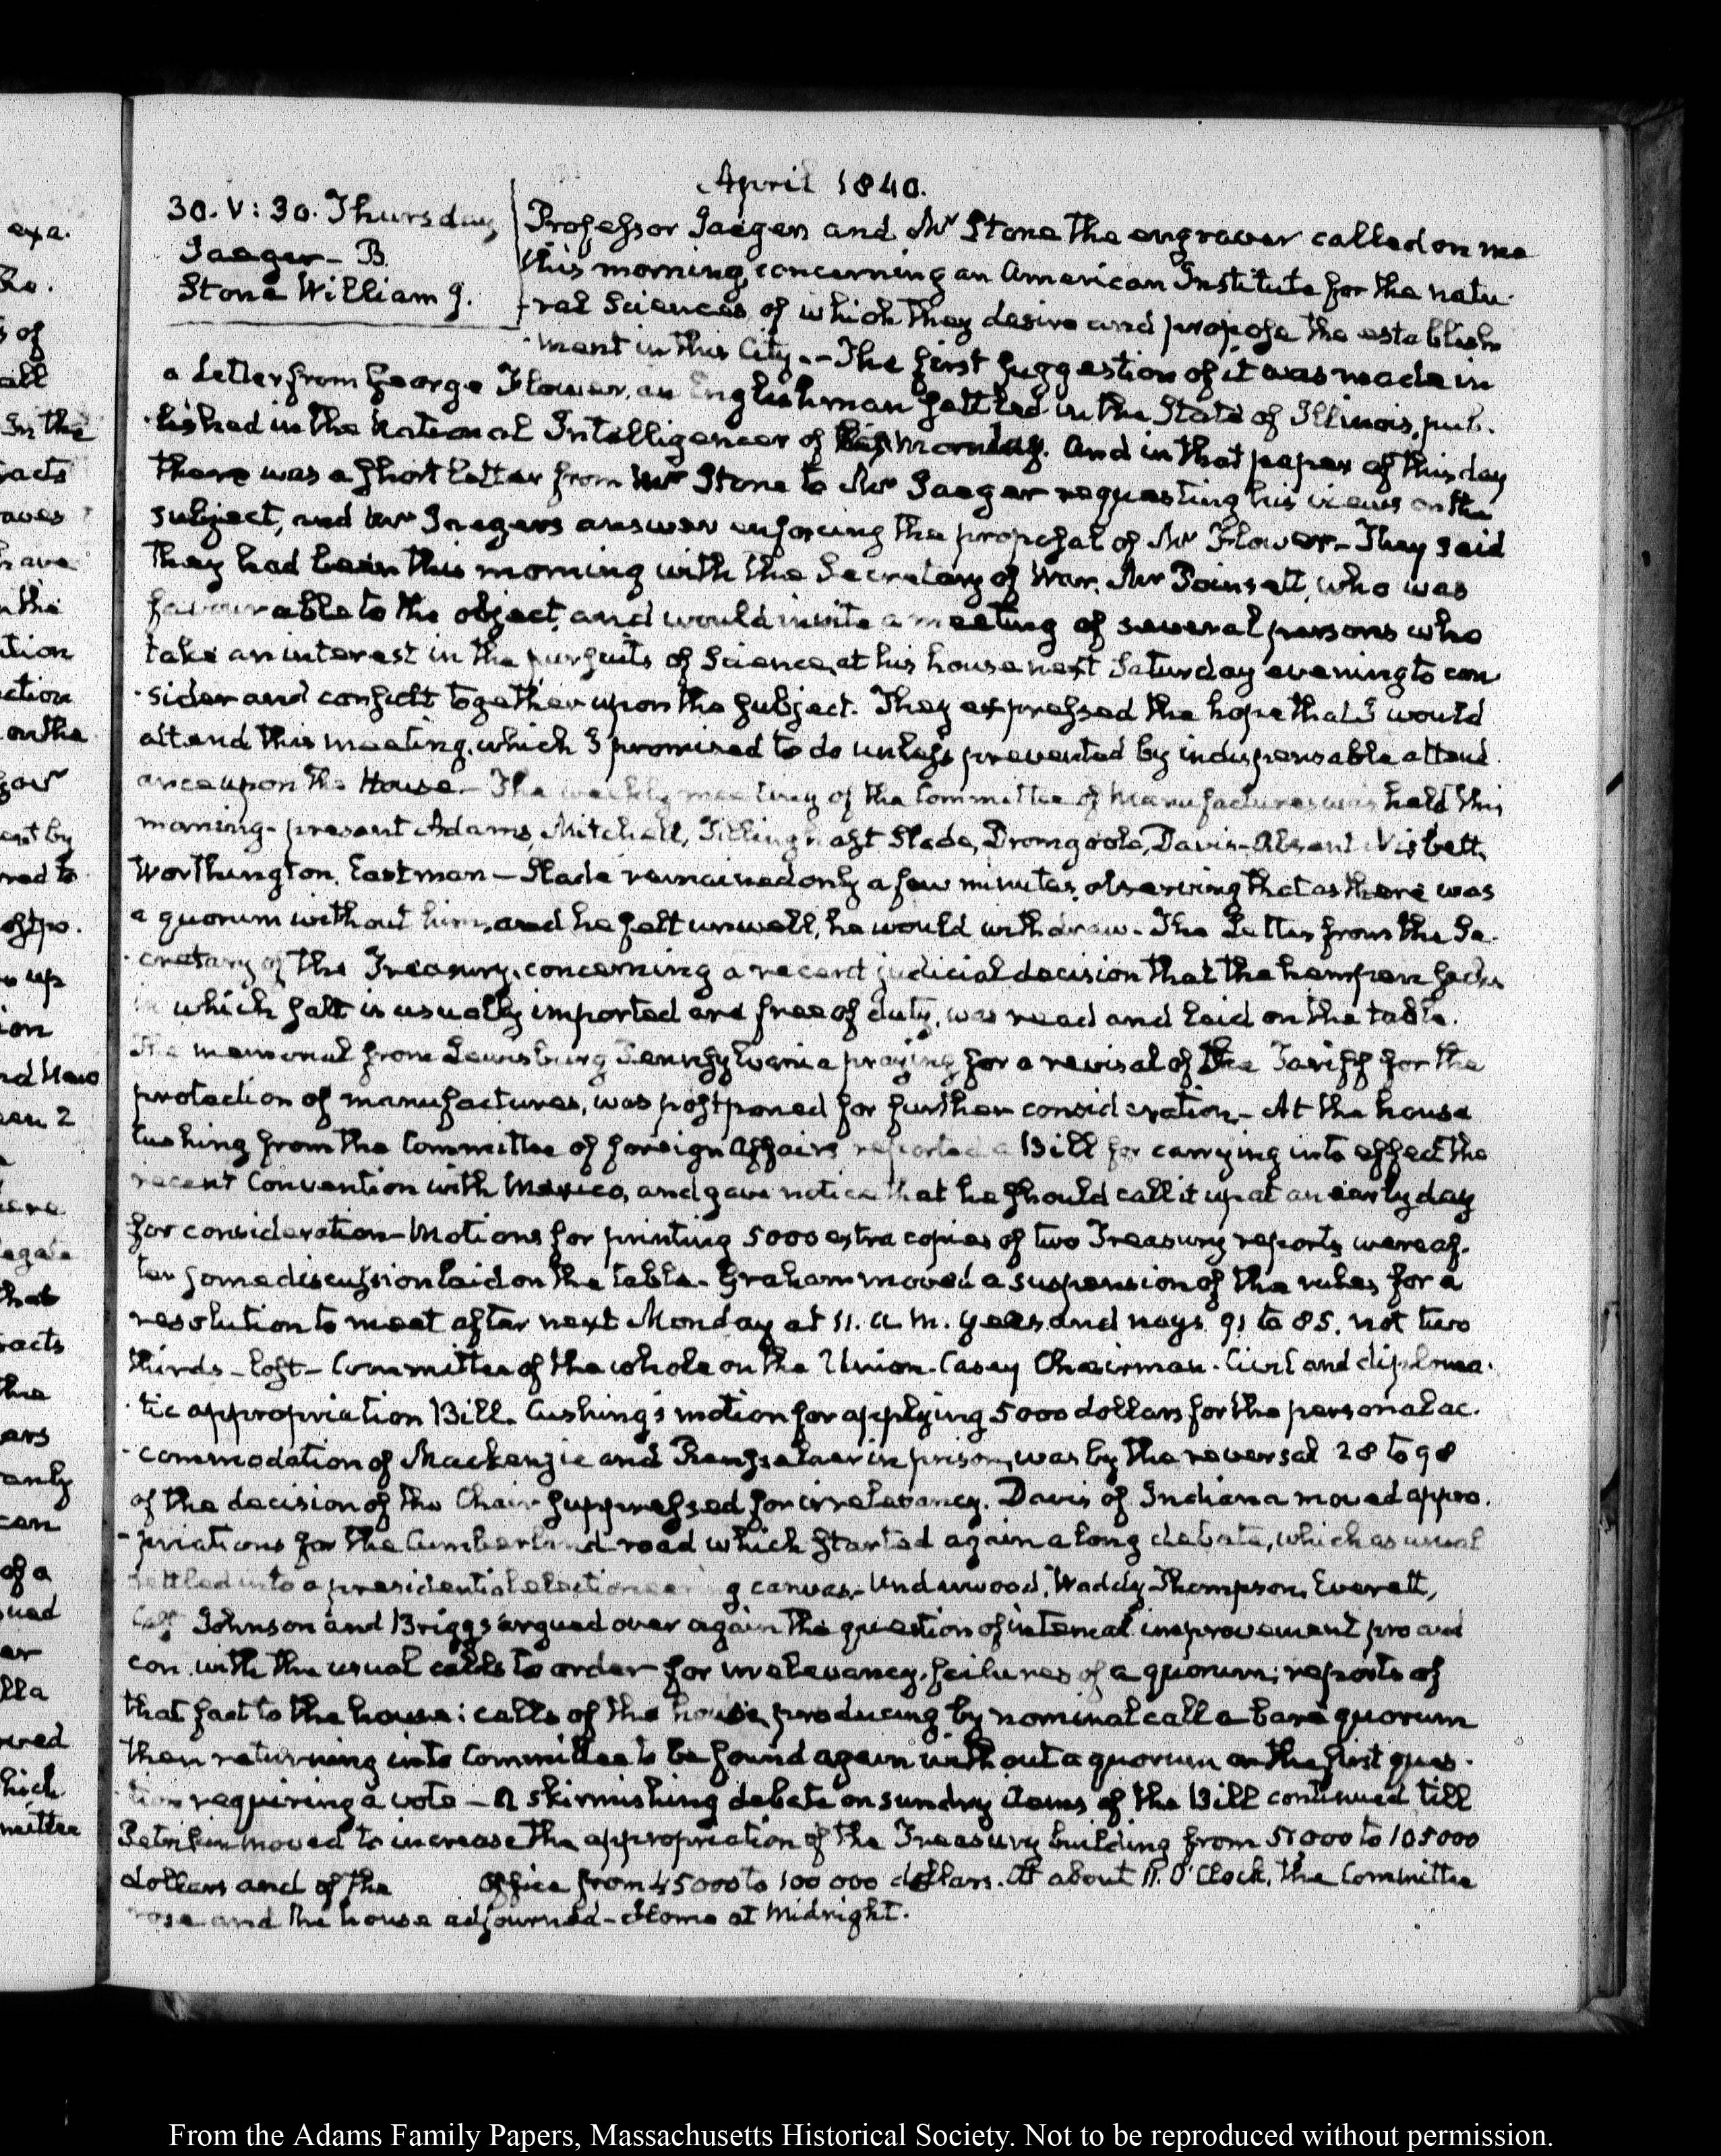 April 1840.
30. V: 30. Thursday
Jaeger - B.
Stone William J.
Professor Jaegers and Mr Stone the engraver called on me
this morning, concerning an American Institute for the natu-
-ral Sciences of which they desire and propose the establish
-ment in this City. - The first suggestion of it was made in
a Letter from George Flower, an Englishman settled in the State of Illinois, pub-
-lished in the National Intelligencer of last monday. and in that paper of this day
there was a short letter from Mr Stone to Mr Jaeger requesting his views on the
subject, and Mr Jaegers answer enforcing the proposal of Mr Flower - They said
they had been this morning with the Secretary of War, Mr Poinsett, who was
favourable to the object, and would invite a meeting of several persons who
take an interest in the pursuits of Science, at his house next Saturday evening to con
-sider and consult together upon the subject. They expressed the hope that I would
attend this meeting, which I promised to do unless prevented by indispensable attend
ance upon the House. - The weekly meeting of the Committee of Manufactures was held this
morning - present Adams, Mitchell, Tillinghast Slade, Dromgoole, Davis - Absent Nisbett,
Worthington, Eastman - Slade remained only a few minutes, observing that as there was
a quorum without him, and he felt unwell, he would withdraw. The Letter from the Se-
-cretary of the Treasury, concerning a recent judicial decision that the hempen sacks
in which salt is usually imported are free of duty, was read and laid on the table.
The memorial from Lewisburg Pennsylvania praying for a revisal of the Tariff for the
protection of manufactures, was postponed for further consideration - At the house
Cushing from the Committee of foreign Affairs reported a Bill for carrying into effect the
recent Convention with Mexico, and gave notice that he should call it up at an early day
for consideration - Motions for printing 5000 extra copies of two Treasury reports were af-
ter some discussion laid on the table - Graham moved a suspension of the rules for a
resolution to meet after next Monday at 11. A. M. yeas and nays 91 to 85. not two
thirds - lost - Committee of the whole on the Union. Casey Chairman. Civil and diploma-
-tic appropriation Bill. Cushing's motion for applying 5000 dollars for the personal ac-
-commodation of Mackenzie and Rensselaer in prison, was by the reversal 28 to 98
of the decision of the Chair suppressed for irrelevancy. Davis of Indiana moved appro-
-priations for the Cumberland road which started again a long debate, which as usual
settled into a presidential electioneering canvas - Underwood, Waddy Thompson, Everett,
Johnson and Briggs argued over again the question of internal improvement pro and
con. with the usual calls to order for irrelevancy. failures of a quorum; reports of
that fact to the house: calls of the house, producing by nominal call a bare quorum
then returning into Committee to be found again without a quorum on the first ques-
-tion requiring a vote - A skirmishing debate on sundry items of the Bill continued till
Petrikin moved to increase the appropriation of the Treasury building from 51000 to 105000
dollars and of the Office from 45000 to 100 000 dollars. At about 11. O'Clock, the Committee
rose and the house adjourned - Home at Midnight.
From the Adams Family Papers, Massachusetts Historical Society. Not to be reproduced without permission.